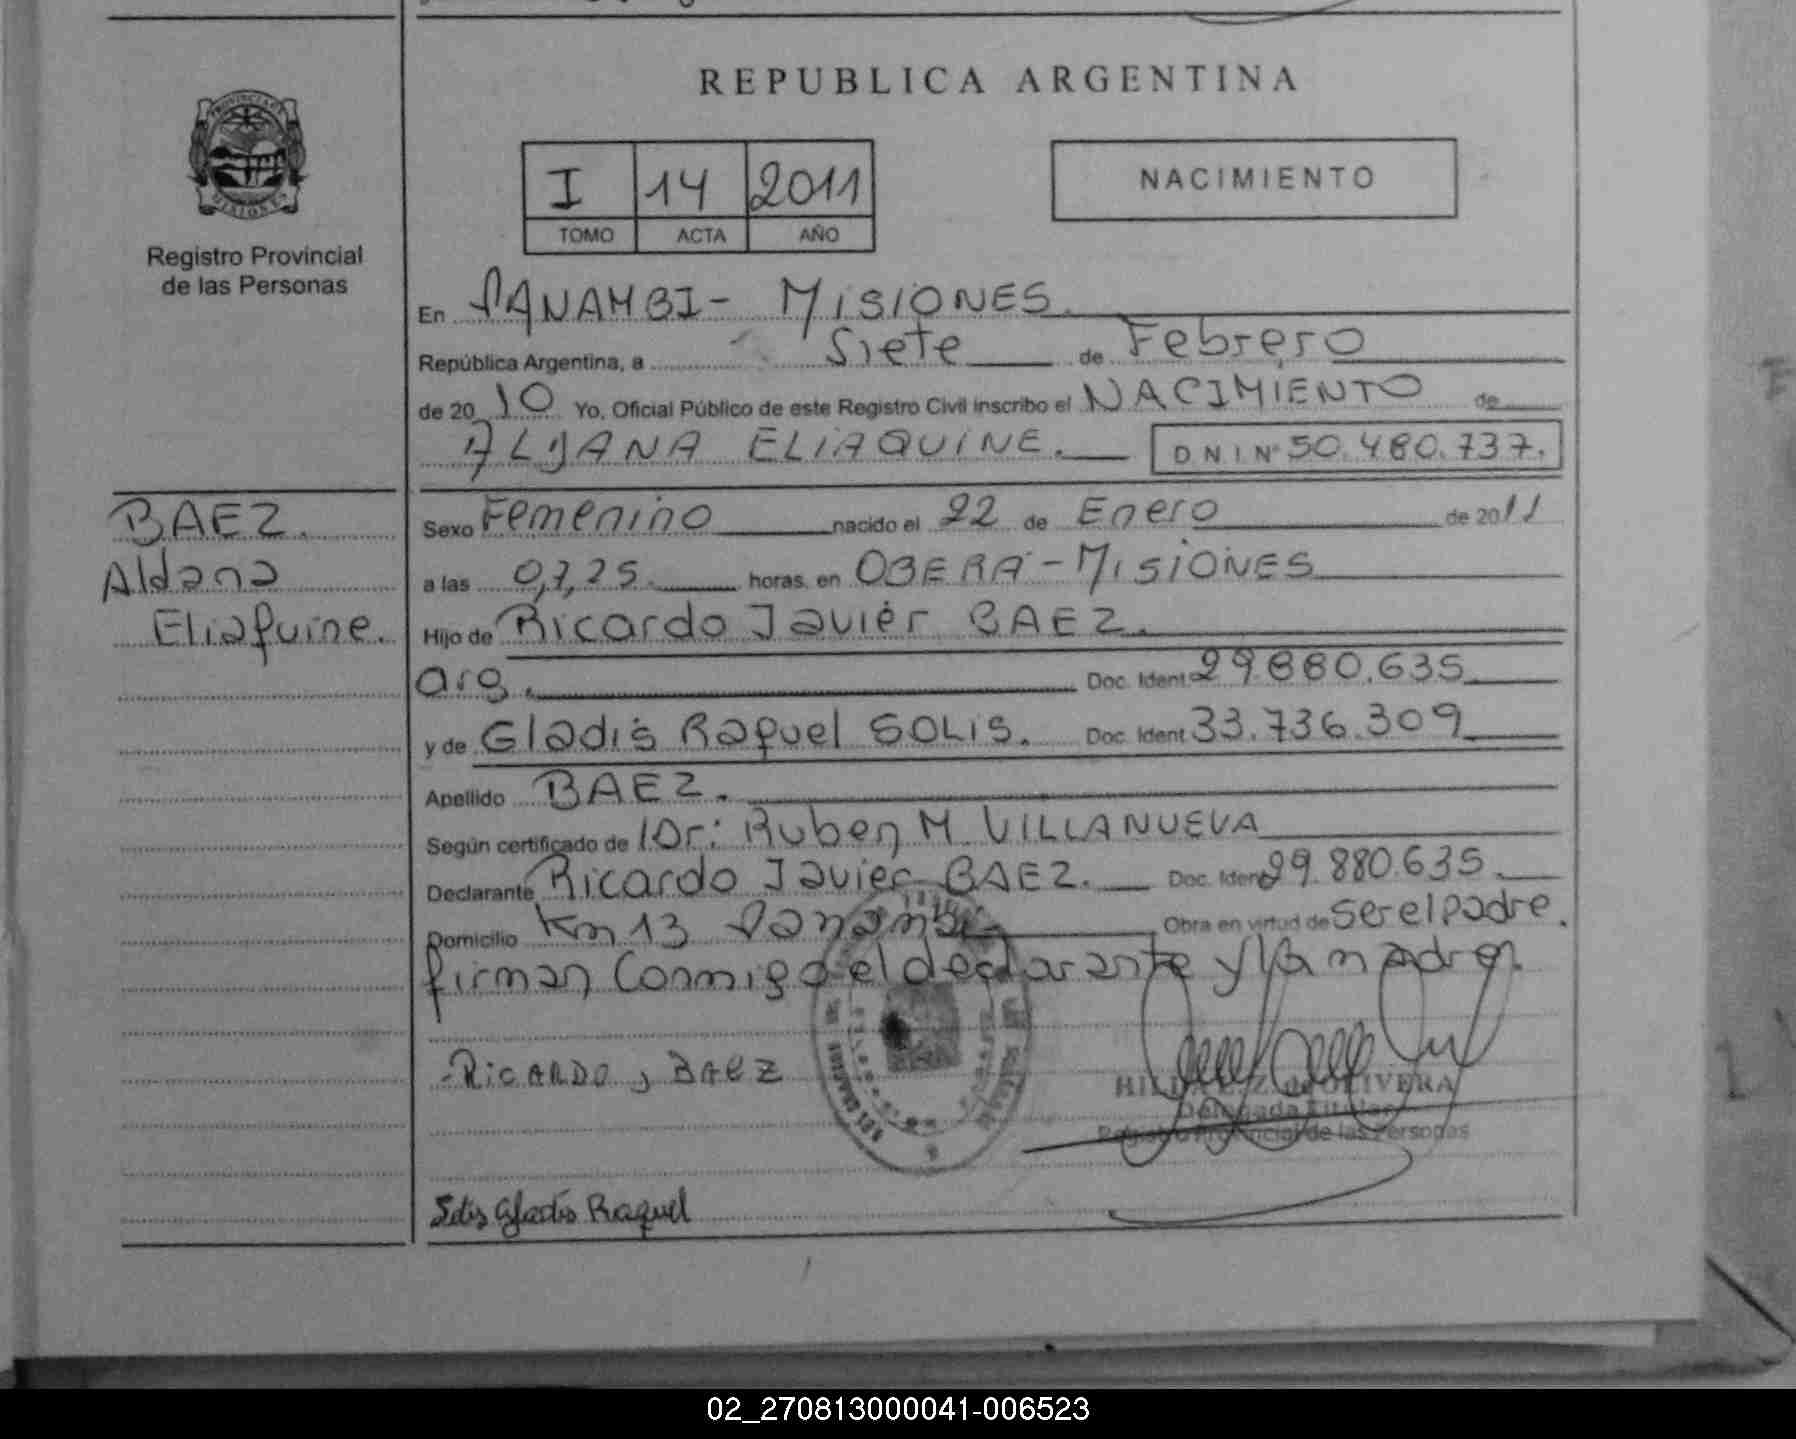 REPUBLICA ARGENTINA
PROVINCIA DE
MISIONES
Registro Provincial
de las Personas
I 14 2011
TOMO ACTA AÑO
NACIMIENTO
En PANAMBI - MISIONES.
República Argentina, a Siete de Febrero
de 20 10 Yo, Oficial Público de este Registro Civil inscribo el NACIMIENTO de
ALDANA ELIAQUINE. D N I Nº 50.480.737.
BAEZ.
Aldana
Eliaquine.
Sexo Femenino nacido el 22 de Enero de 2011
a las 07,25. horas. en OBERA - MISIONES
Hijo de Ricardo Javier BAEZ.
arg. Doc. Ident. 29.880.635
y de Gladis Raquel SOLIS. Doc. Ident 33.736.309
Apellido BAEZ.
Según certificado de Dr: Ruben M. VILLANUEVA
Declarante Ricardo Javier BAEZ. Doc. Ident 29.880.635.
Domicilio Km 13 Panambi Obra en virtud de ser el padre.
firman Conmigo el declarante y la madre.
RICARDO J BAEZ
DE OLIVERA
Delegada Titular
Registro Provincial de las Personas
Solis Gladis Raquel
02_270813000041-006523